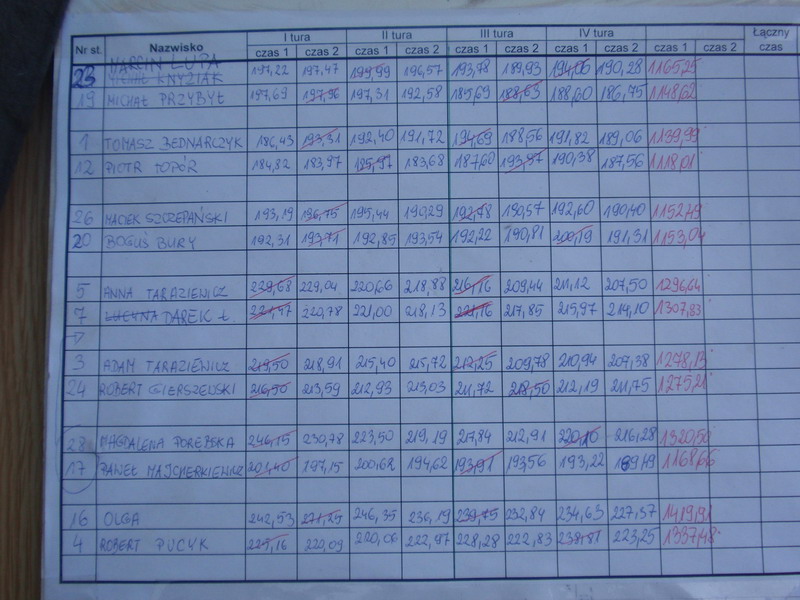 I tura II tura III tura IV tura Łączny
Nr st. Nazwisko czas 1 czas 2 czas 1 czas 2 czas 1 czas 2 czas 1 czas 2 czas 1 czas 2 czas
MARCIN LUPA
23 MICHAŁ KNYZIAK 197,22 197,47 199,99 196,57 193,78 189,93 194,06 190,28 1165,25
19 MICHAŁ PRZYBYŁ 197,69 197,96 197,31 192,58 189,69 188,63 188,60 186,75 1148,62
1 TOMASZ BEDNARCZYK 186,43 193,31 192,40 191,72 194,69 188,56 191,82 189,06 1139,99
12 PIOTR TOPÓR 184,82 183,97 185,97 183,68 187,60 193,97 190,38 187,56 1118,01
26 MACIEK SZCZEPAŃSKI 193,19 196,75 195,44 190,29 192,78 190,57 192,60 190,40 1152,49
20 BOGUŚ BURY 192,31 193,71 192,85 193,54 192,22 190,81 200,19 191,31 1153,04
5 ANNA TARAZIEWICZ 239,68 229,04 220,66 218,88 216,16 209,44 211,12 207,50 1296,64
7 LUCYNA DAREK Ł. 221,47 220,78 221,00 218,13 221,16 217,85 215,97 214,10 1307,83
3 ADAM TARAZIEWICZ 219,50 218,91 215,40 215,72 212,25 209,78 210,94 207,38 1278,13
24 ROBERT GIERSZEWSKI 216,50 213,59 212,93 213,03 211,72 218,50 212,19 211,75 1275,21
28 MAGDALENA PORĘBSKA 246,15 230,78 223,50 219,19 217,84 212,91 220,10 216,28 1320,50
17 PAWEŁ MAJCHERKIEWICZ 201,40 197,15 200,62 194,62 193,91 193,56 193,22 189,49 1168,66
16 OLGA 242,53 271,25 246,35 236,19 239,75 232,84 234,63 227,37 1419,91
4 ROBERT PUCYK 225,16 220,09 220,06 222,97 228,28 222,83 238,81 223,25 1337,48